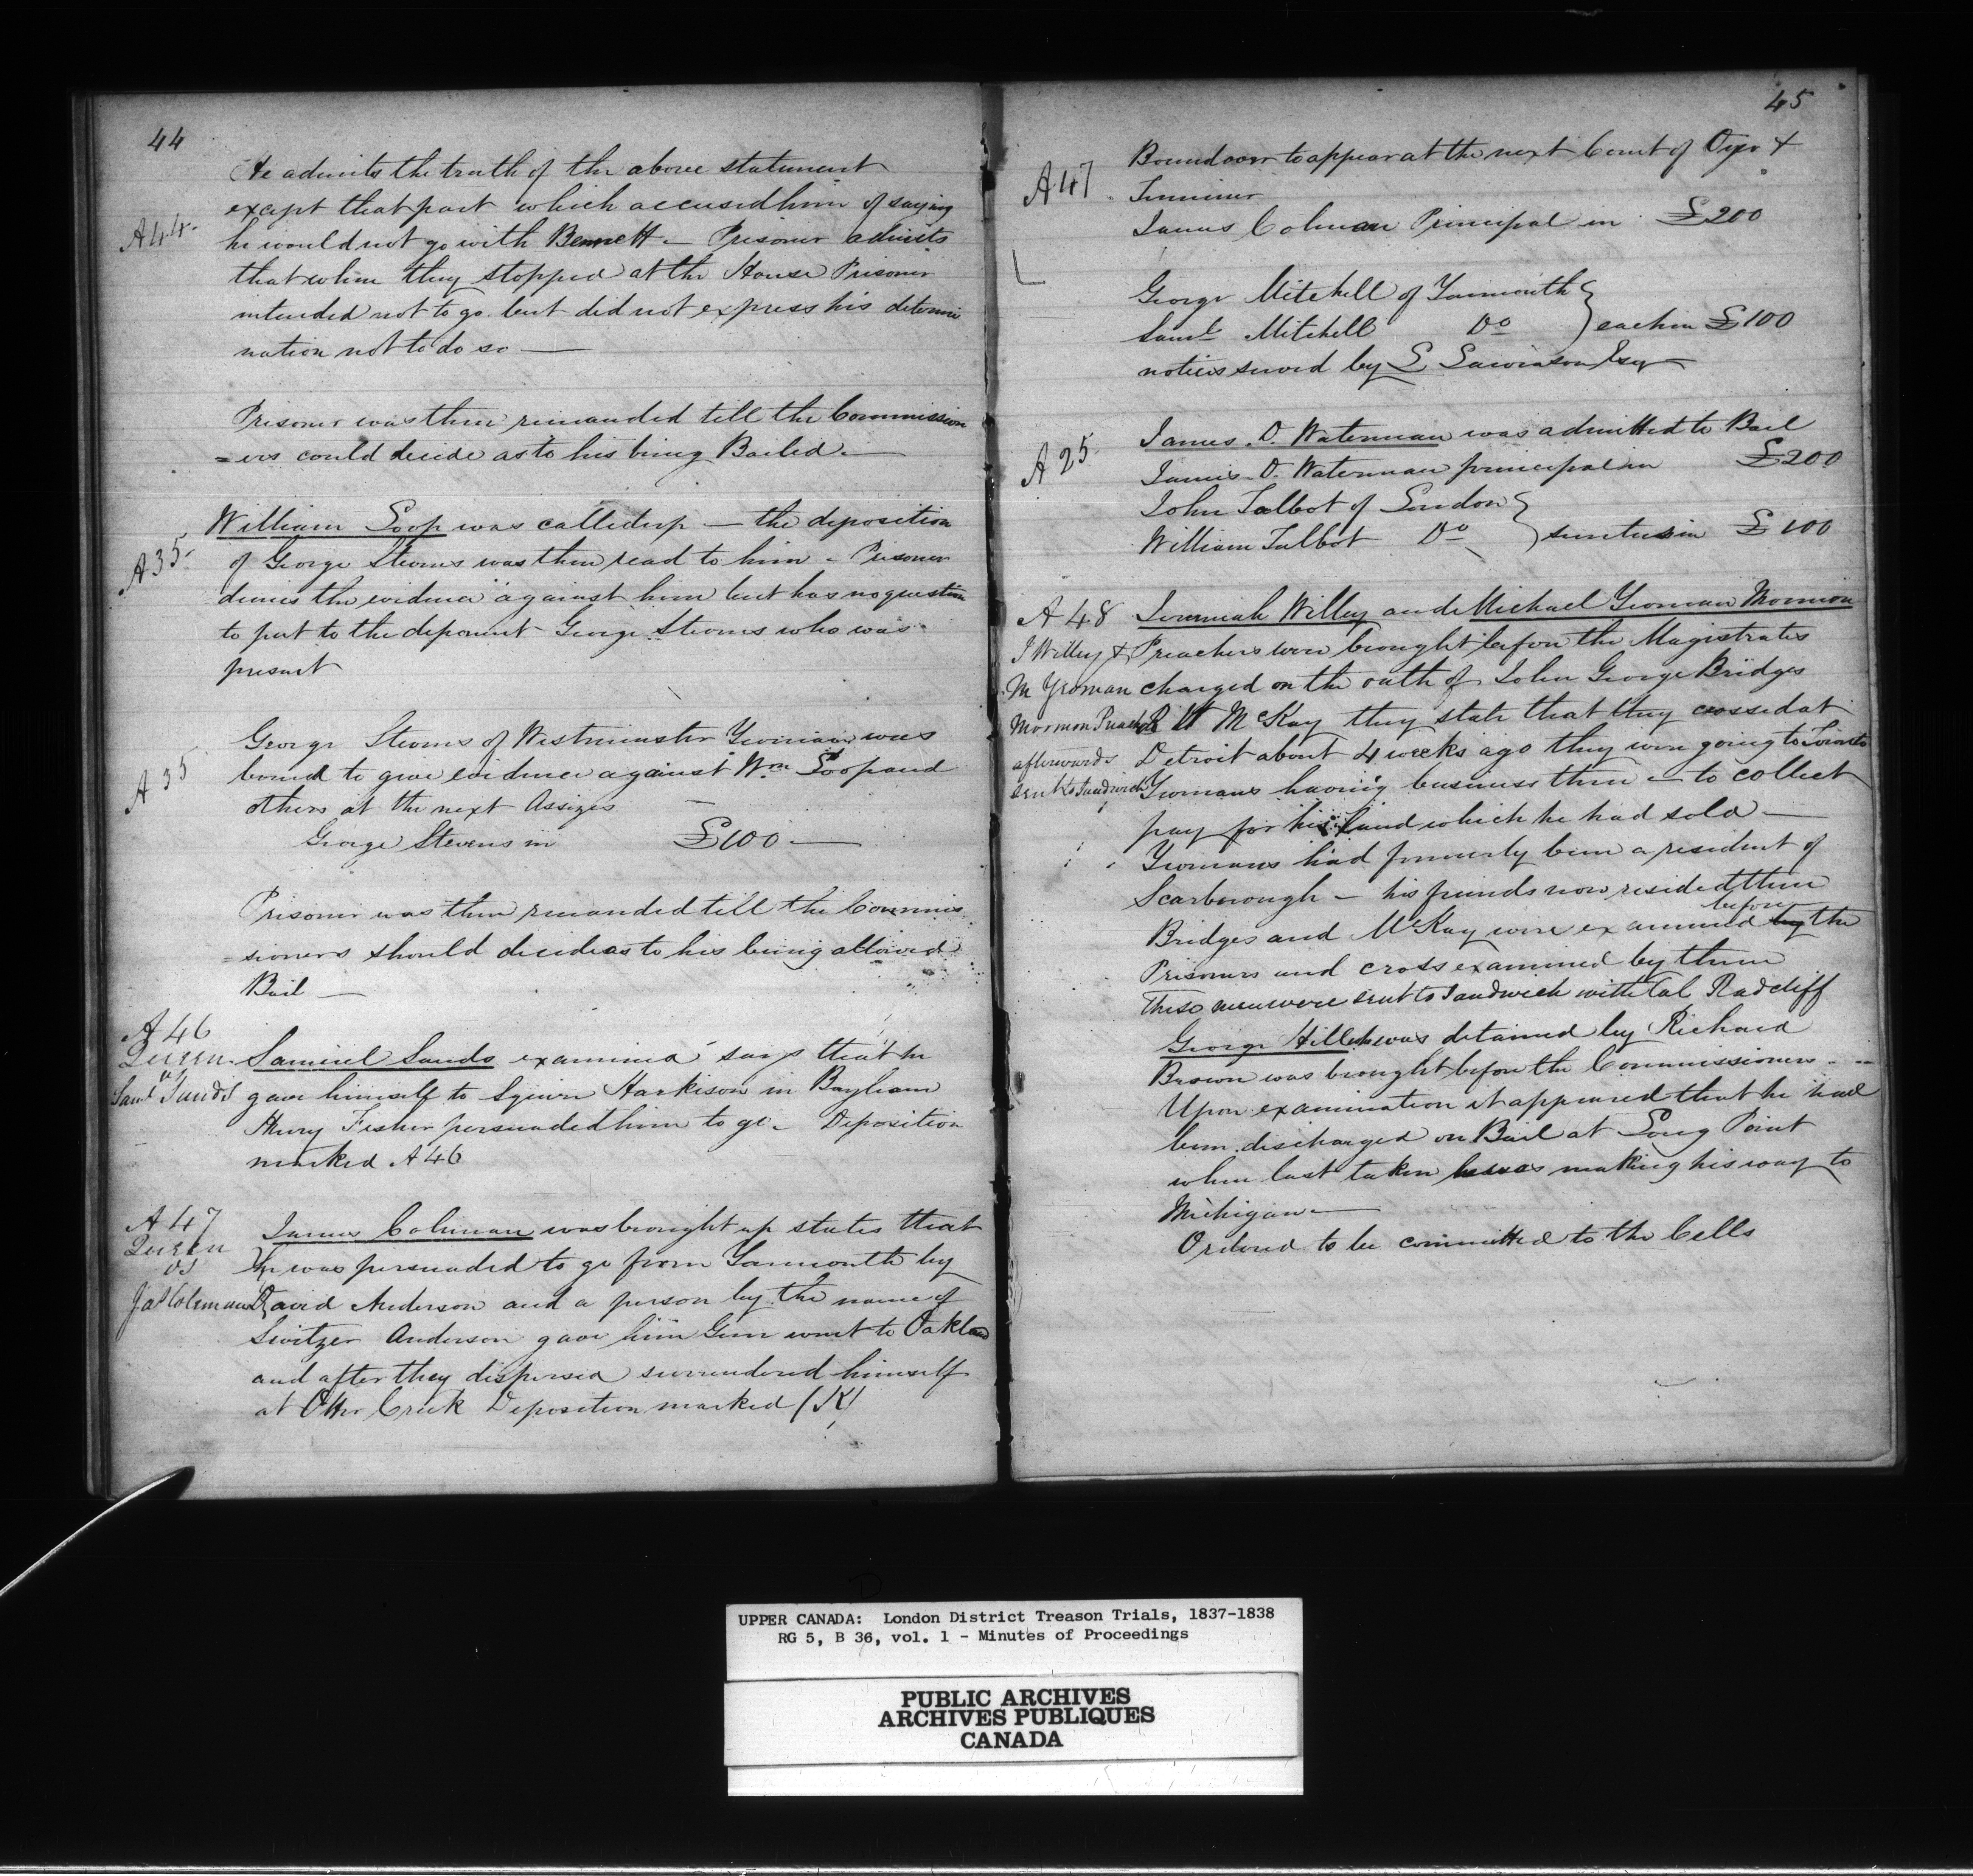 44
He admits the truth of the above statement
except that part which accused him of saying
A44. he would not go with Bennett — Prisoner admits
that when they stopped at the House Prisoner
intended not to go but did not express his determi
nation not to do so —
Prisoner was then remanded till the Commission
=ers could decide as to his being Bailed —
William Loop was called up — the deposition
A35. of George Stevens was then read to him - Prisoner
denies the evidence against him but has no question
to put to the deponent George Stevens who was
present
George Stevens of Westminster Yeoman was
A35 bound to give evidence against Wm Loop and
others at the next Assizes —
George Stevens in £100 —
Prisoner was then remanded till the Commis
=sioners should decide as to his being allowed
Bail —
A46
Queen Samuel Sands examined says that he
vs
Saml Sands gave himself to Squire Harkison in Bayham
Henry Fisher persuaded him to go - Deposition
marked A46
A47 James Coleman was brought up states that
Queen
vs he was persuaded to go from Yarmouth by
Jas Coleman David Anderson and a person by the name of
Switzer Anderson gave him Gun went to Oakland
and after they dispersed surrendered himself
at Otter Creek Deposition marked (K)
45
Bound over to appear at the next Court of Oyer &
A47 Terminer
James Colman Principal in £200
George Mitchell of Yarmouth }
Saml Mitchell Do } each in £100
notices served by L Lawrason Esqr
James. D. Waterman was admitted to Bail
A25 James. D. Waterman principal in £200
John Talbot of London }
William Talbot Do } sureties in £100
A48 Jeremiah Willey and Michael Yeoman Mormon
J Willey & Preachers were brought before the Magistrates
M Yeoman charged on the oath of John George Bridges
Mormon Preachers & McKay they state that they crossed at
afterwards Detroit about 4 weeks ago they were going to Toronto
sent to Sandwich Yeomans having business there — to collect
pay for his land which he had sold —
Yeomans had formerly been a resident of
Scarborough — his friends now resided there
before
Bridges and McKay were examined by the
Prisoners and cross examined by them
These men were sent to Sandwich with Col Radcliff
George Hiller was detained by Richard
Brown was brought before the Commissioners —
Upon examination it appeared that he had
been discharged on Bail at Long Point
when last taken he was making his way to
Michigan —
Ordered to be committed to the Cells
UPPER CANADA: London District Treason Trials, 1837-1838
RG 5, B 36, vol. 1 - Minutes of Proceedings
PUBLIC ARCHIVES
ARCHIVES PUBLIQUES
CANADA